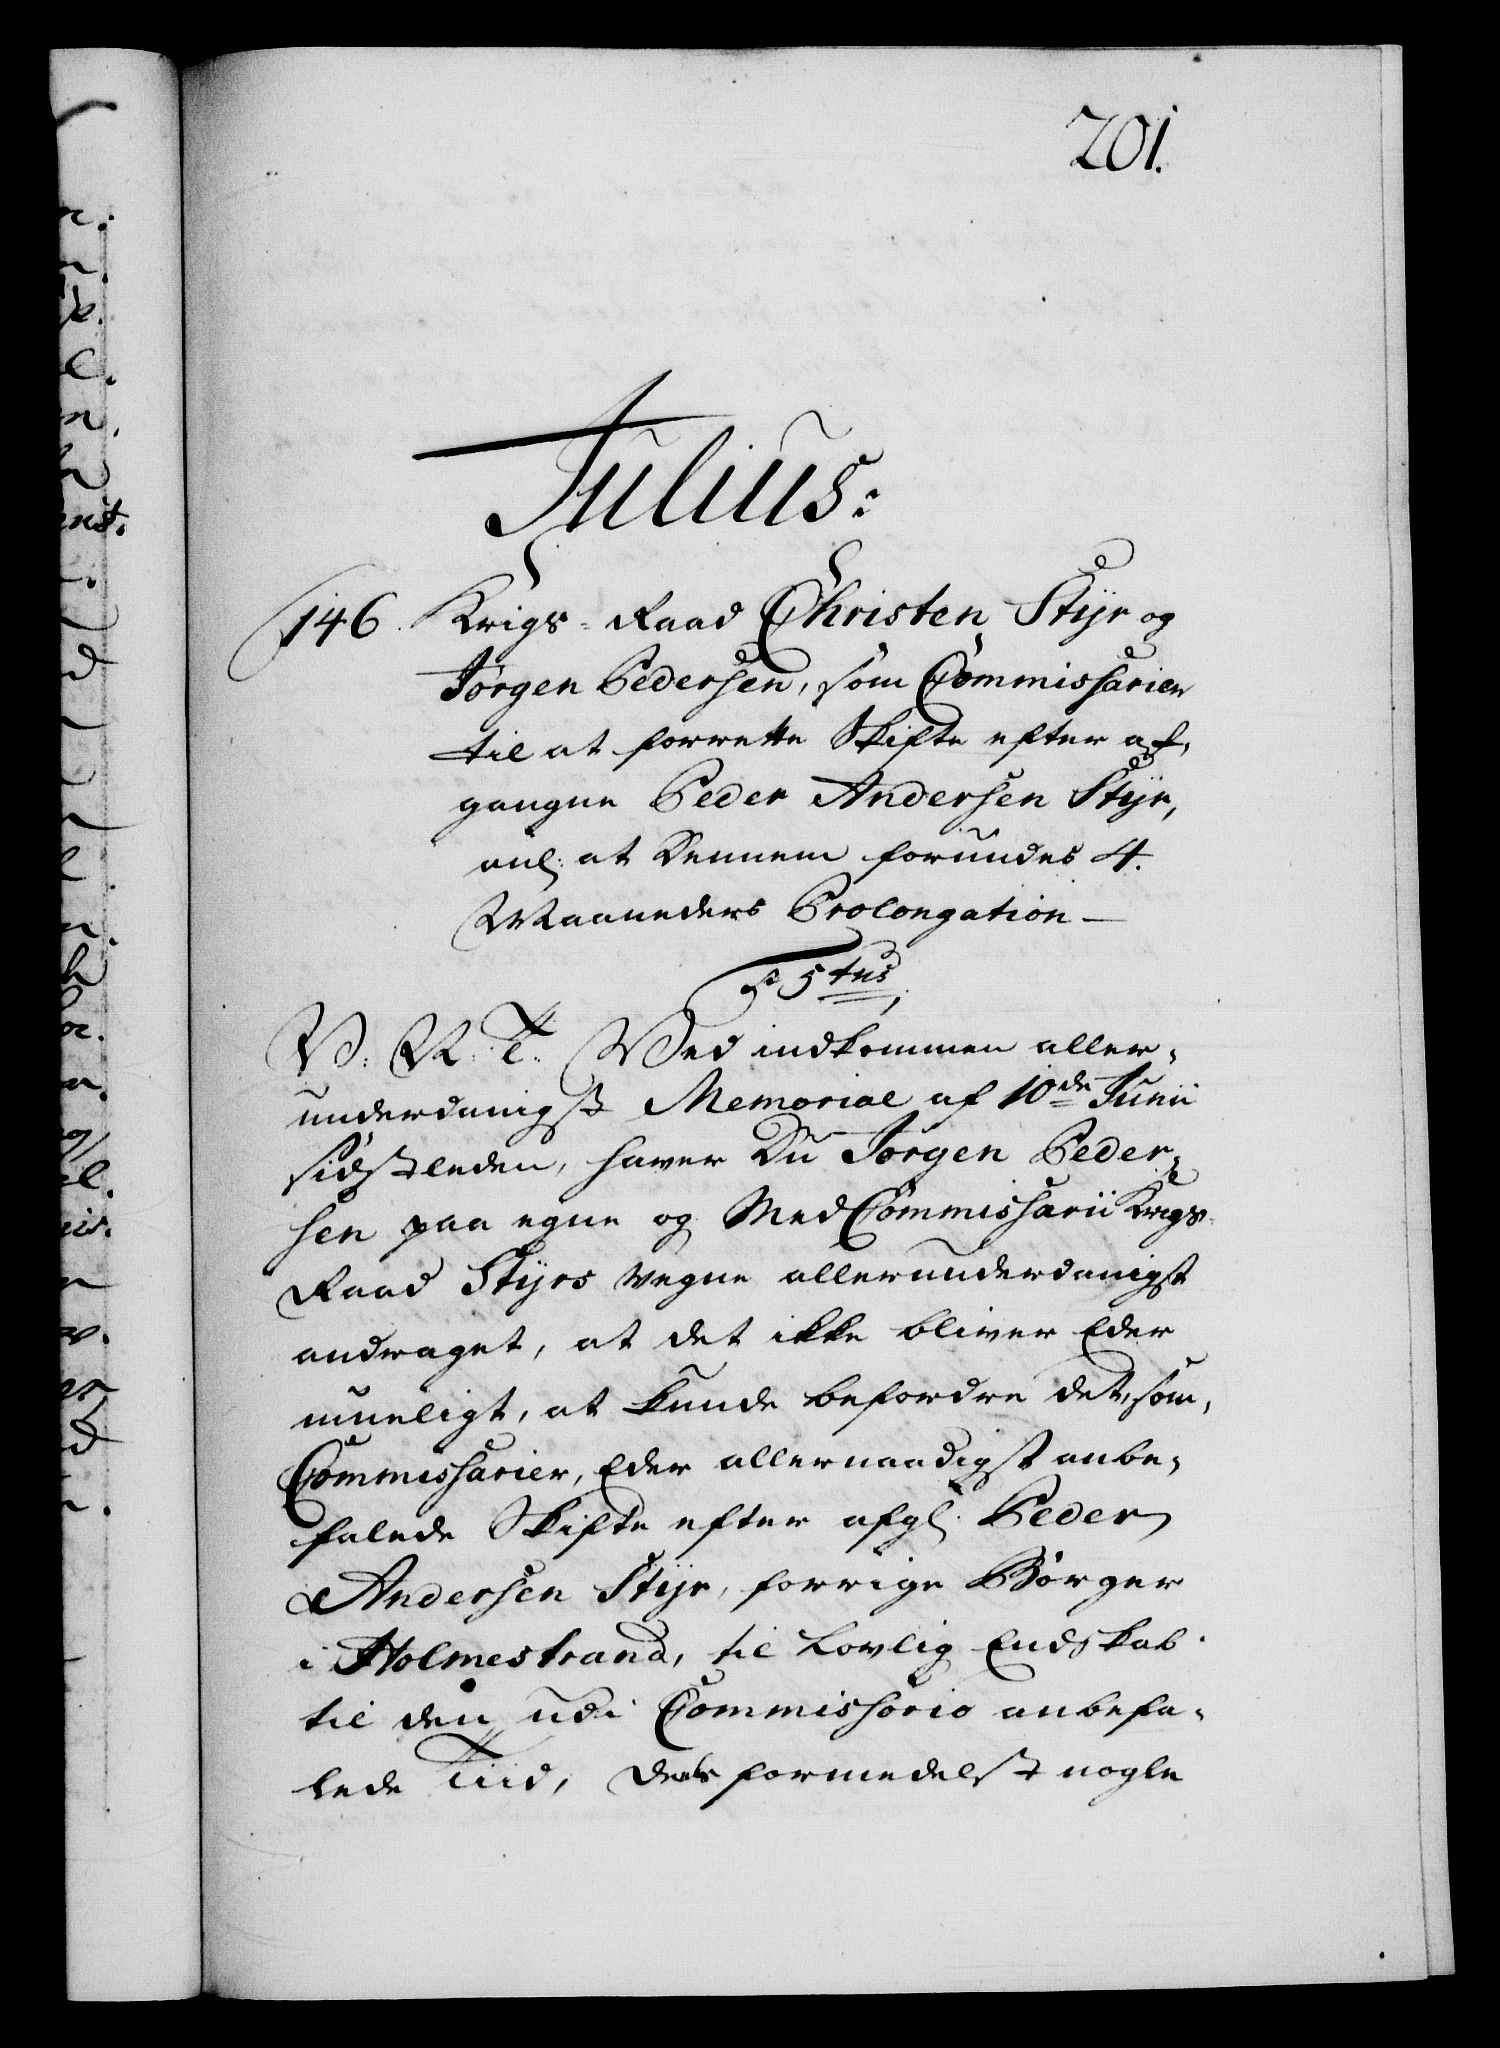 201.
Julius:
146. Krigs-Raad Christen Stijr og
Jørgen Pedersen, som Commissarier
til at forrette Skifte efter af-
gangne Peder Andersen Stijr,
anl: at dennem forundes 4.
Maaneders Prolongation —
5tus
V: R: T: Ved indkommen aller-
underdanigst Memorial af 10de Junii
sidstleden, haver Du Jørgen Peder-
sen paa egne og Med Commissarii Krigs-
Raad Stijrs vegne allerunderdanigst
andraget, at det ikke bliver Eder
mueligt, at kunde befordre det, som,
Commissarier, Eder allernaadigst anbe-
falede Skifte efter afg: Peder
Andersen Stijr, forrige Børger
i Holmestrand, til Lovlig Endskab
til den udi Commissorio anbefa-
lede Tiid, deels formedelst nogle